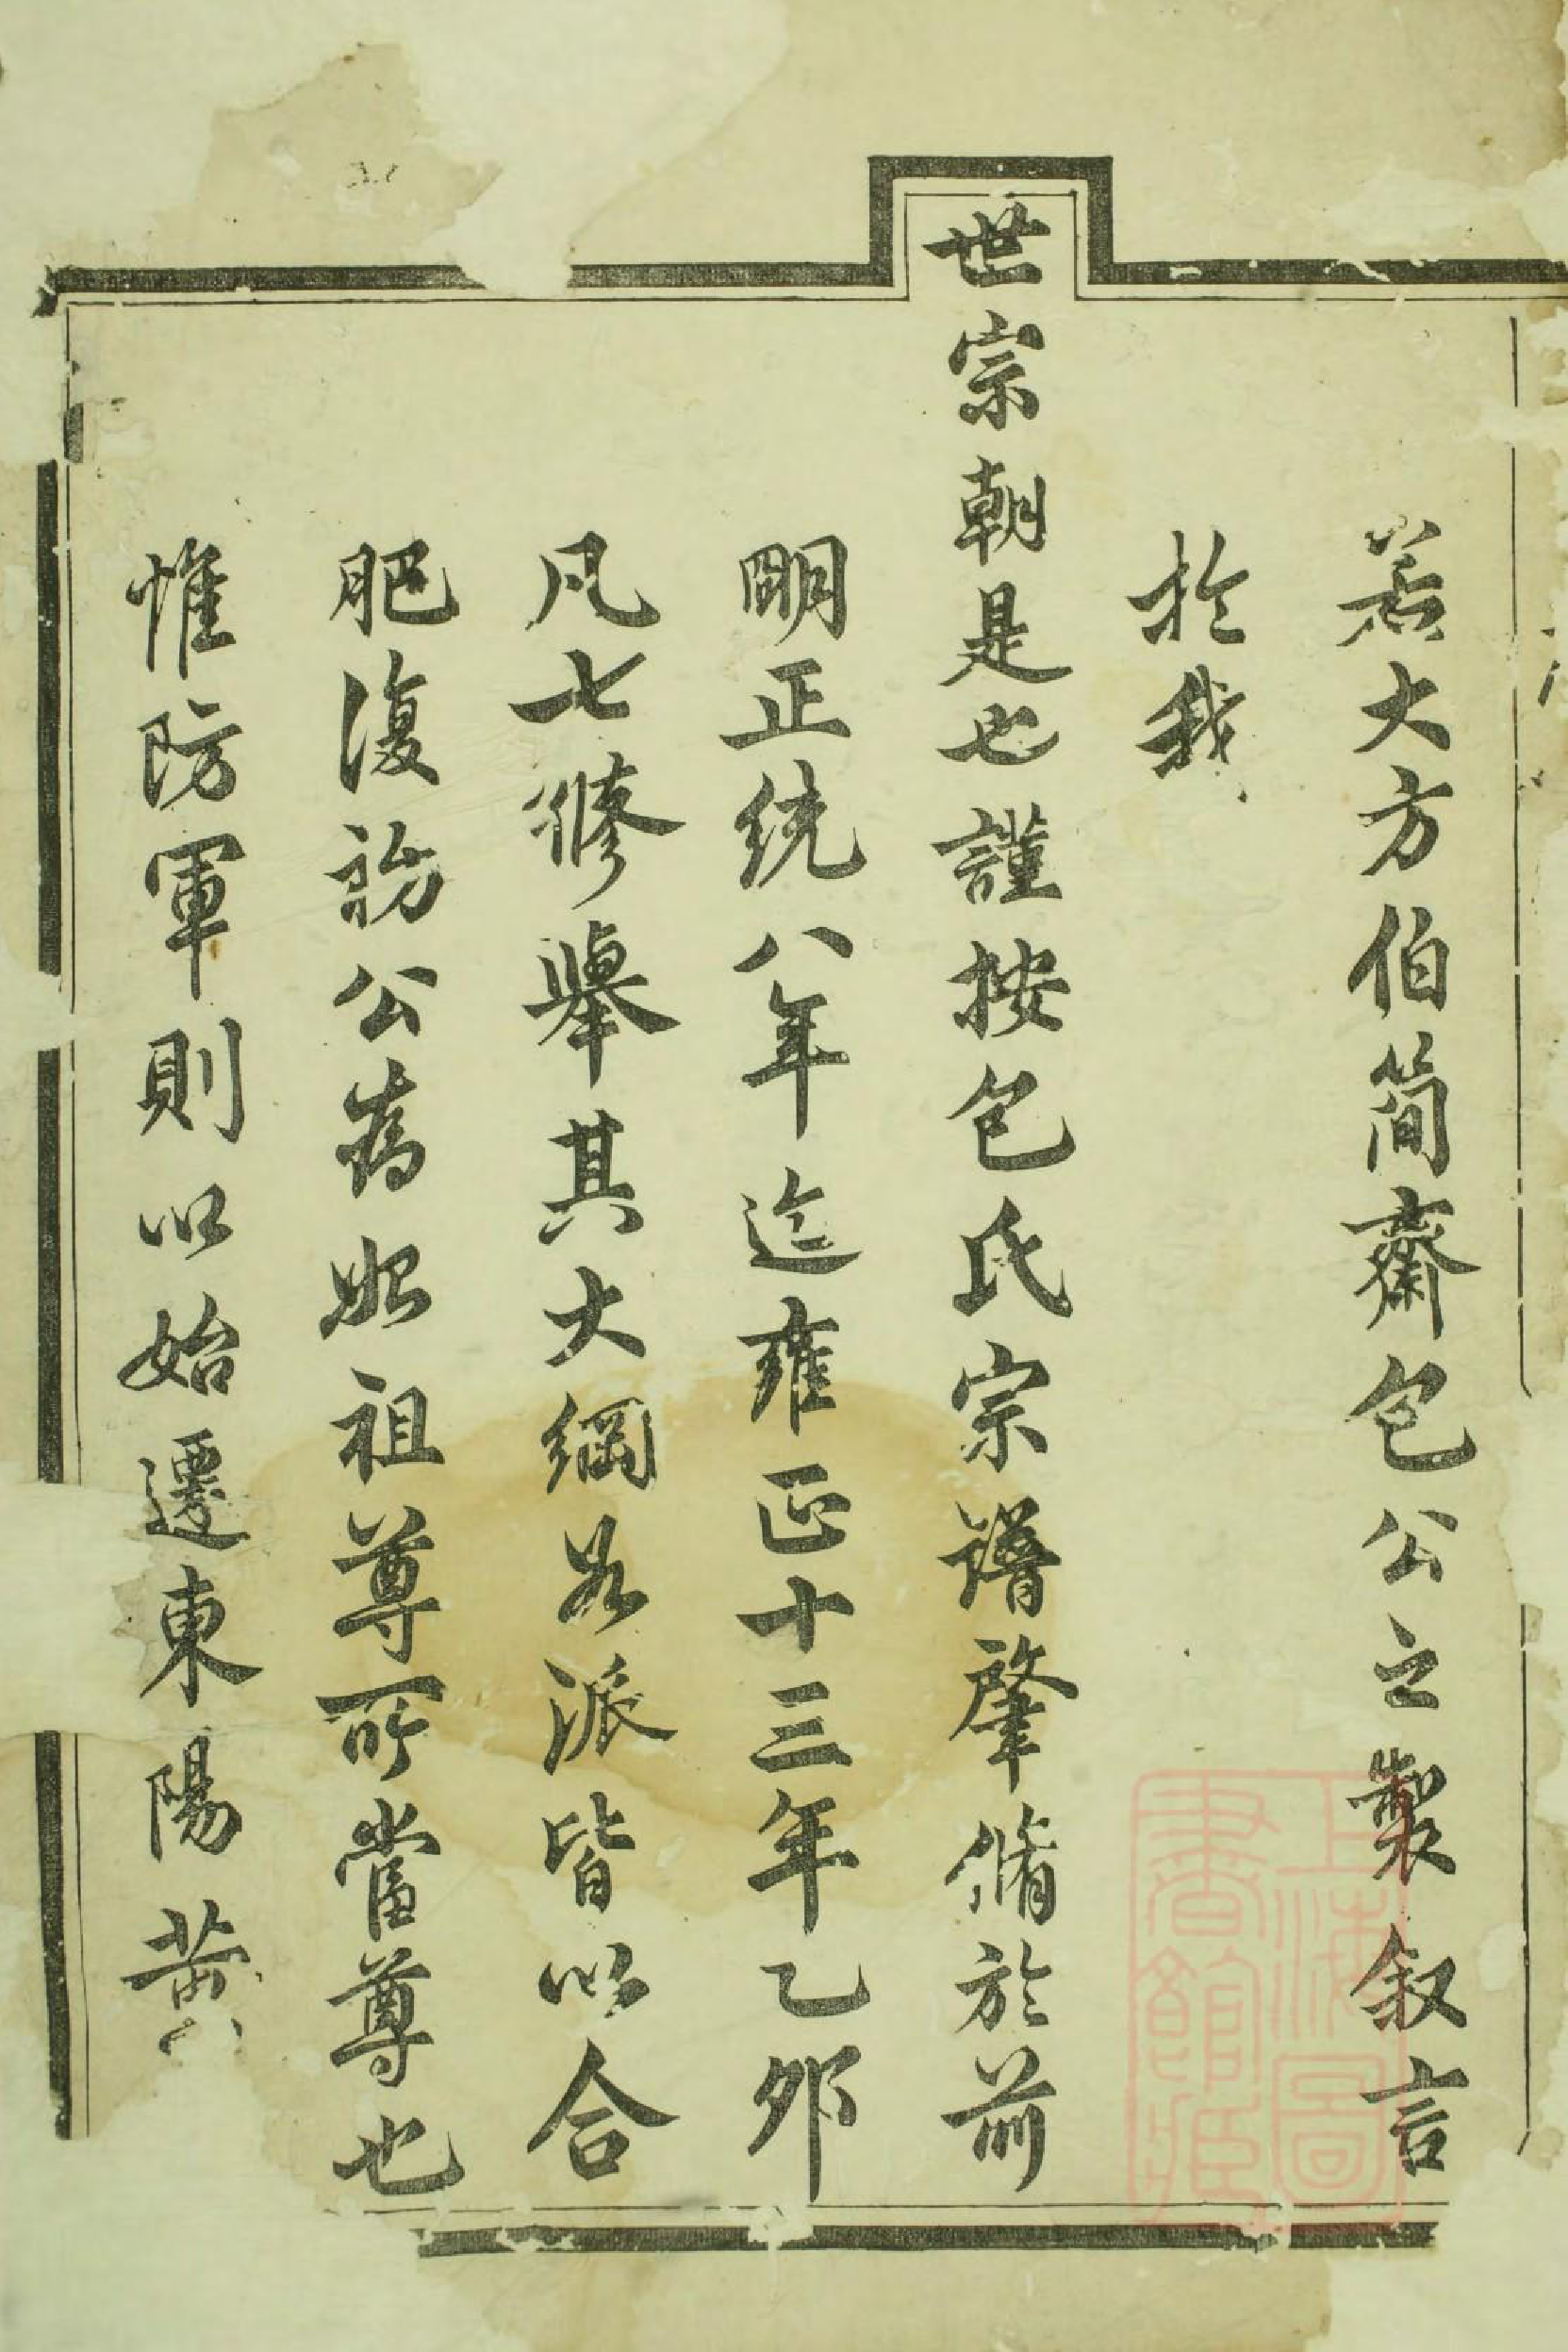 若大方伯简齋包公之製叙言
於我
世宗朝是也謹按包氏宗譜肇脩於前
明正統八年迄雍正十三年乙卯
凡七修舉其大綱各派皆以合
肥復初公為始祖尊所當尊也
惟防軍則以始遷東陽黄
上海圖書館藏